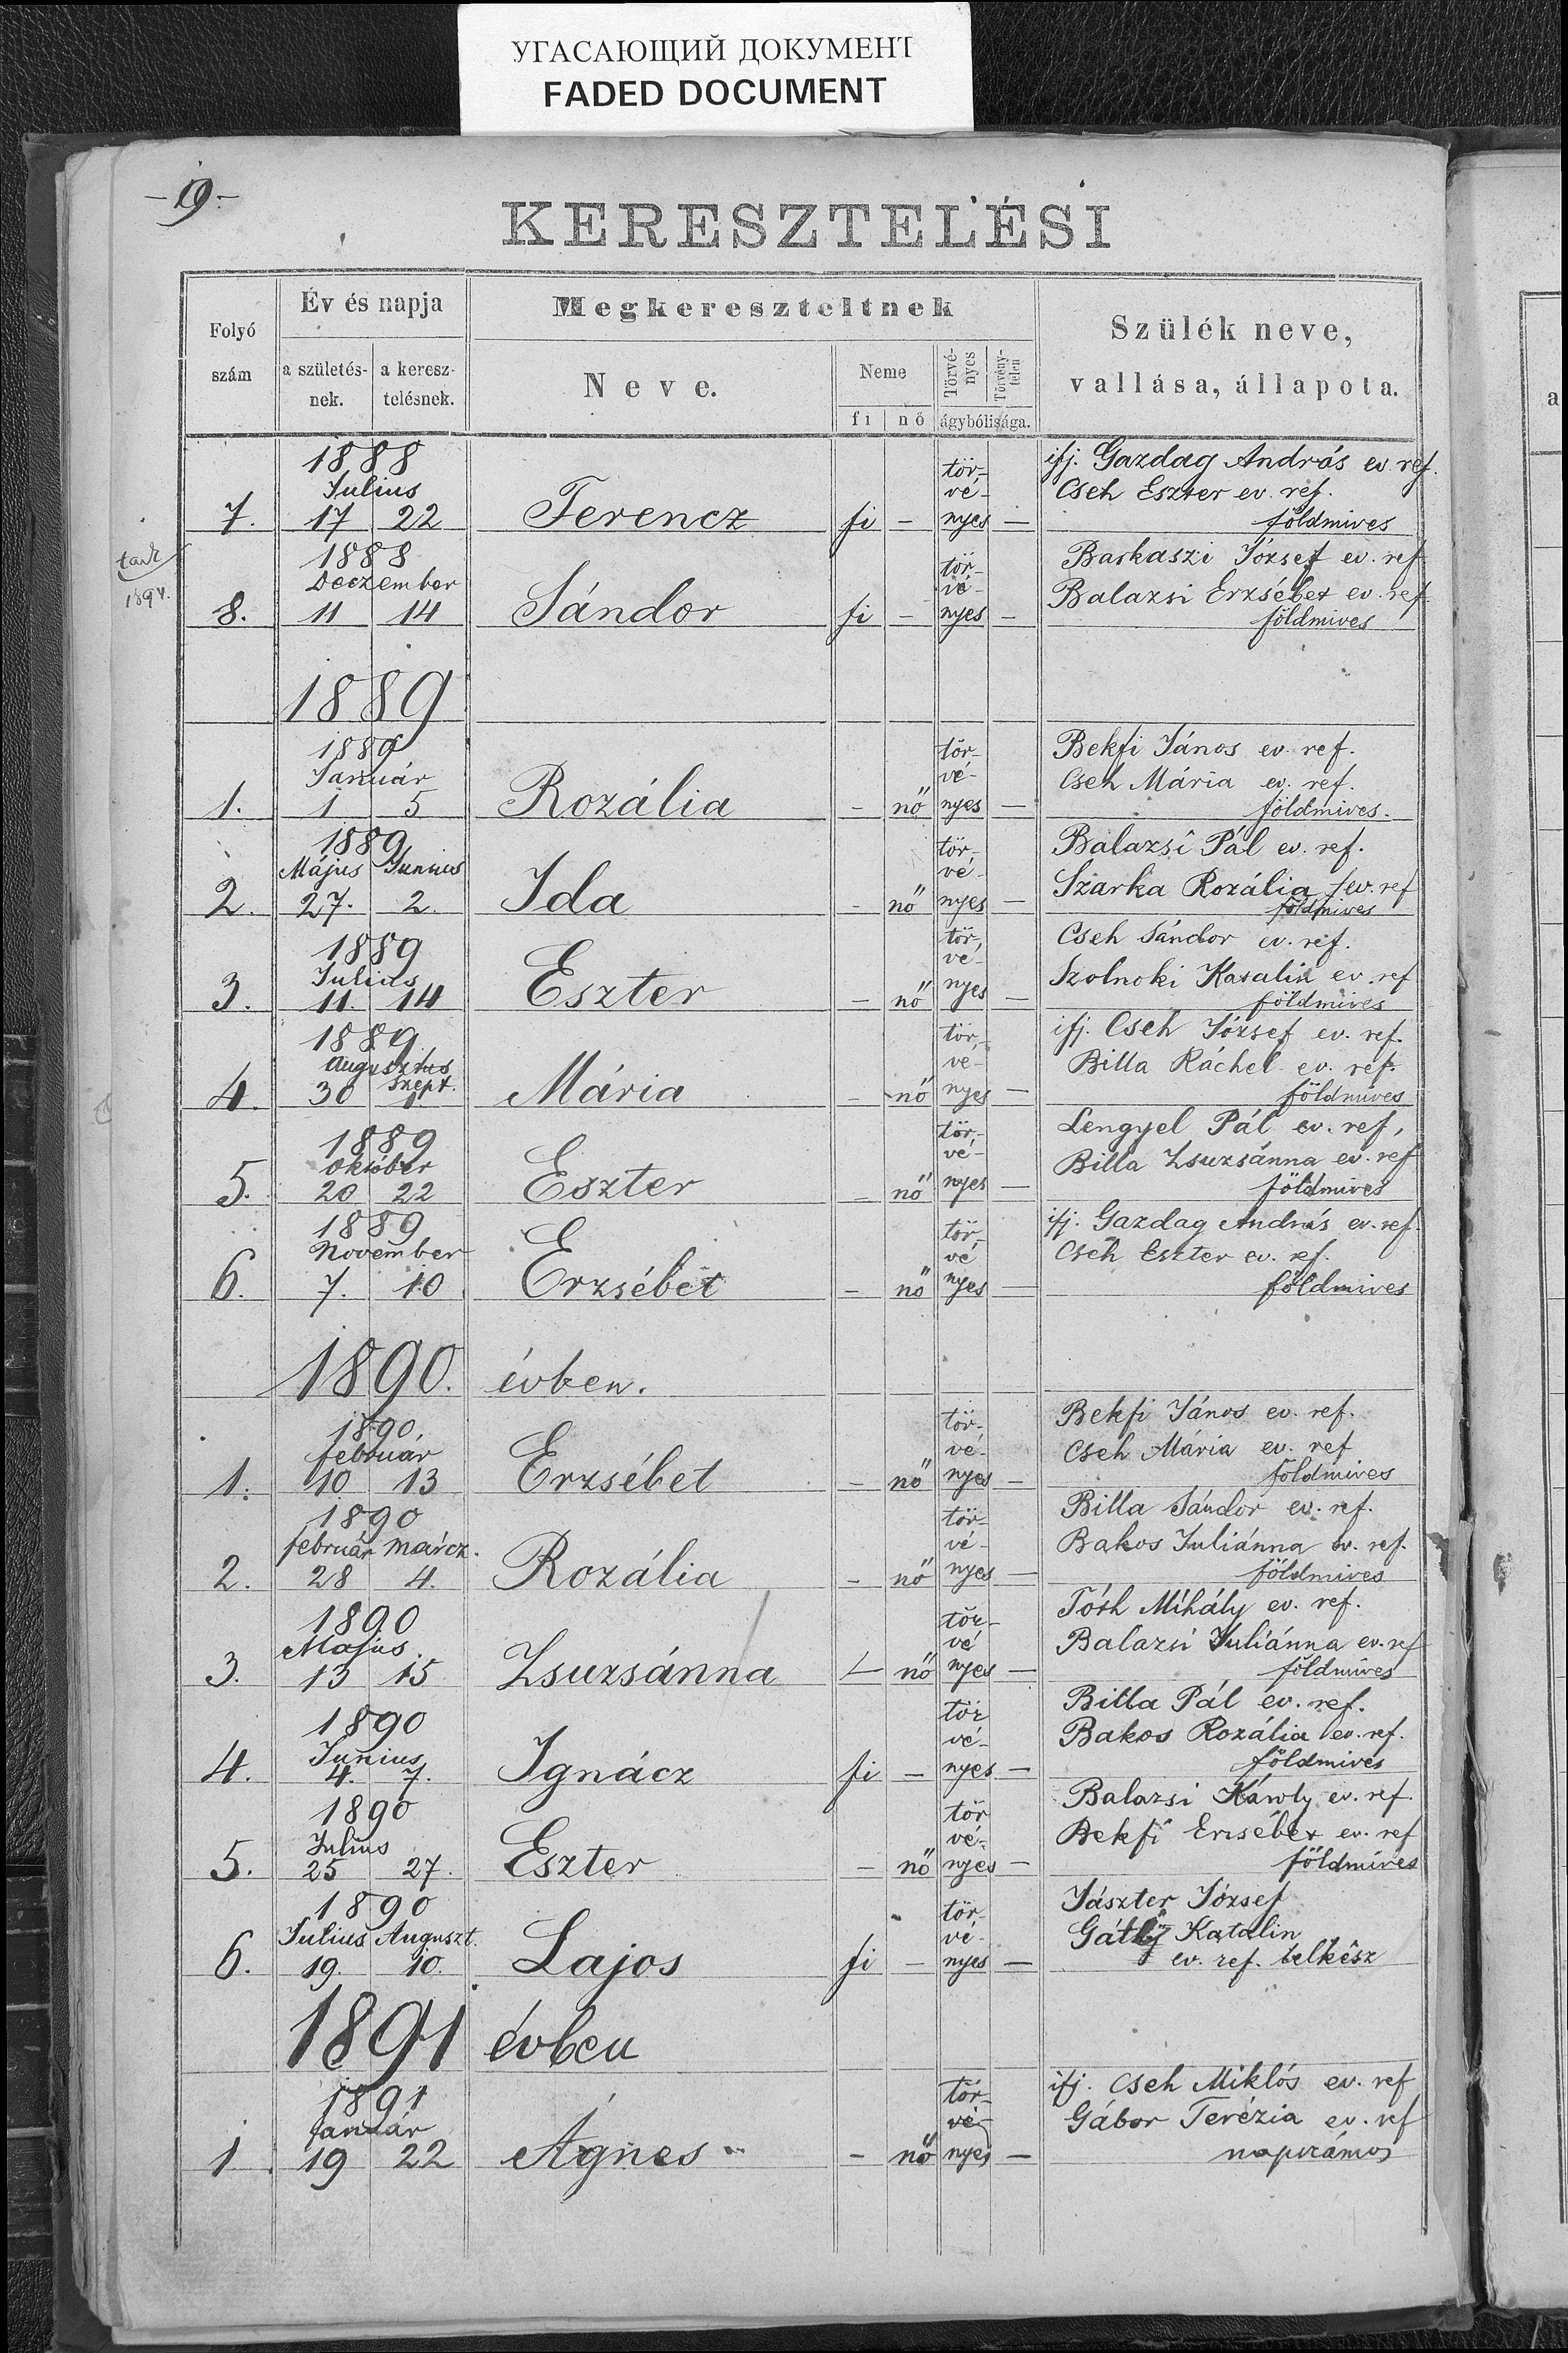 УГАСАЮЩИЙ ДОКУМЕНТ
FADED DOCUMENT
-19-
KERESZTELÉSI
Folyó szám
Év és napja
a születés-nek.
a keresz-telésnek.
Megkereszteltnek
Neve.
Neme
fi nő
Törvé-nyes
Törvény-telen
ágybólisága.
Szülék neve,
vallása, állapota.
1888 tör- ifj. Gazdag András ev. ref.
Julius vé- Cseh Eszter ev. ref.
7. 17 22 Ferencz fi - nyes - földmives
1888 tör- Barkaszi József ev. ref
Deczember vé- Balazsi Erzsébet ev. ref.
8. 11 14 Sándor fi - nyes - földmives
1894.
1889
1889 tör- Bekfi János ev. ref.
Január vé- Cseh Mária ev. ref.
1. 1 5 Rozália - nő nyes - földmives.
1889 tör- Balazsi Pál ev. ref.
Május Junius vé- Szarka Rozália ev. ref
2. 27. 2. Ida - nő nyes - földmives
1889 tör- Cseh Sándor ev. ref.
Julius vé- Szolnoki Katalin ev. ref
3. 11. 14 Eszter - nő nyes - földmives
1889 tör- ifj. Cseh József ev. ref.
Augusztus Szept. vé- Billa Ráchel ev. ref.
4. 30 1. Mária - nő nyes - földmives
1889 tör- Lengyel Pál ev. ref,
Október vé- Billa Zsuzsánna ev. ref
5. 20 22 Eszter - nő nyes - földmives
1889 tör- ifj. Gazdag András ev. ref.
November vé Cseh Eszter ev. ref.
6. 7. 10 Erzsébet - nő nyes - földmives
1890. évben.
1890. tör- Bekfi János ev. ref.
február vé- Cseh Mária ev. ref
1. 10 13 Erzsébet - nő nyes - földmives
1890 tör- Billa Sándor ev. ref.
február márcz. vé- Bakos Juliánna ev. ref.
2. 28 4. Rozália - nő nyes - földmives
1890 tör- Tóth Mihály ev. ref.
Május vé Balazsi Juliánna ev. ref
3. 13 15 Zsuzsánna - nő nyes - földmives
1890 tör Billa Pál ev. ref.
Junius vé- Bakos Rozália ev. ref.
4. 4. 7. Ignácz fi - nyes - földmives
1890 tör Balazsi Károly ev. ref.
Julius vé- Bekfi Erzsébet ev. ref
5. 25 27. Eszter - nő nyes - földmives
1890 tör- Jászter József
Julius Auguszt. vé- Gátly Katalin
6. 19. 10. Lajos fi - nyes - ev. ref. lelkész
1891 évben
1891 tör- ifj. Cseh Miklós ev. ref
Január vé- Gábor Terézia ev. ref
1 19 22 Ágnes - nő nyes - napszámos